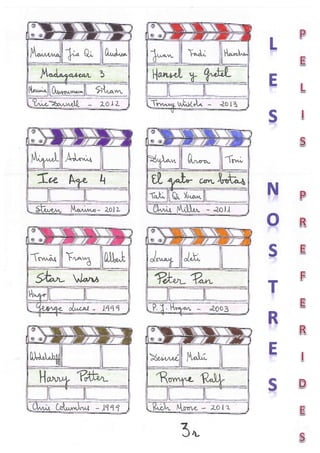 Mourena Jia Qi Andrea
Madagascar 3
Siham
Eric Darnell - 2012
Juan Fadi
Hansel y Gretel
Tommy Wirkola - 2013
Miguel Adonis
Ice Age 4
Steven Marino - 2012
Dylan Aroa Toni
El gato con botas
Tati Qi Xuan
Chris Miller - 2011
Tomás Franz Albert
Star Wars
Hugo
George Lucas - 1999
Lounay Leti
Peter Pan
P. J. Hogan - 2003
Abdelatif
Harry Potter
Chris Columbus - 1999
Desireé Malú
Rompe Ralf
Rich Moore - 2012
3r
LES NOSTRES
PELIS PREFERIDES